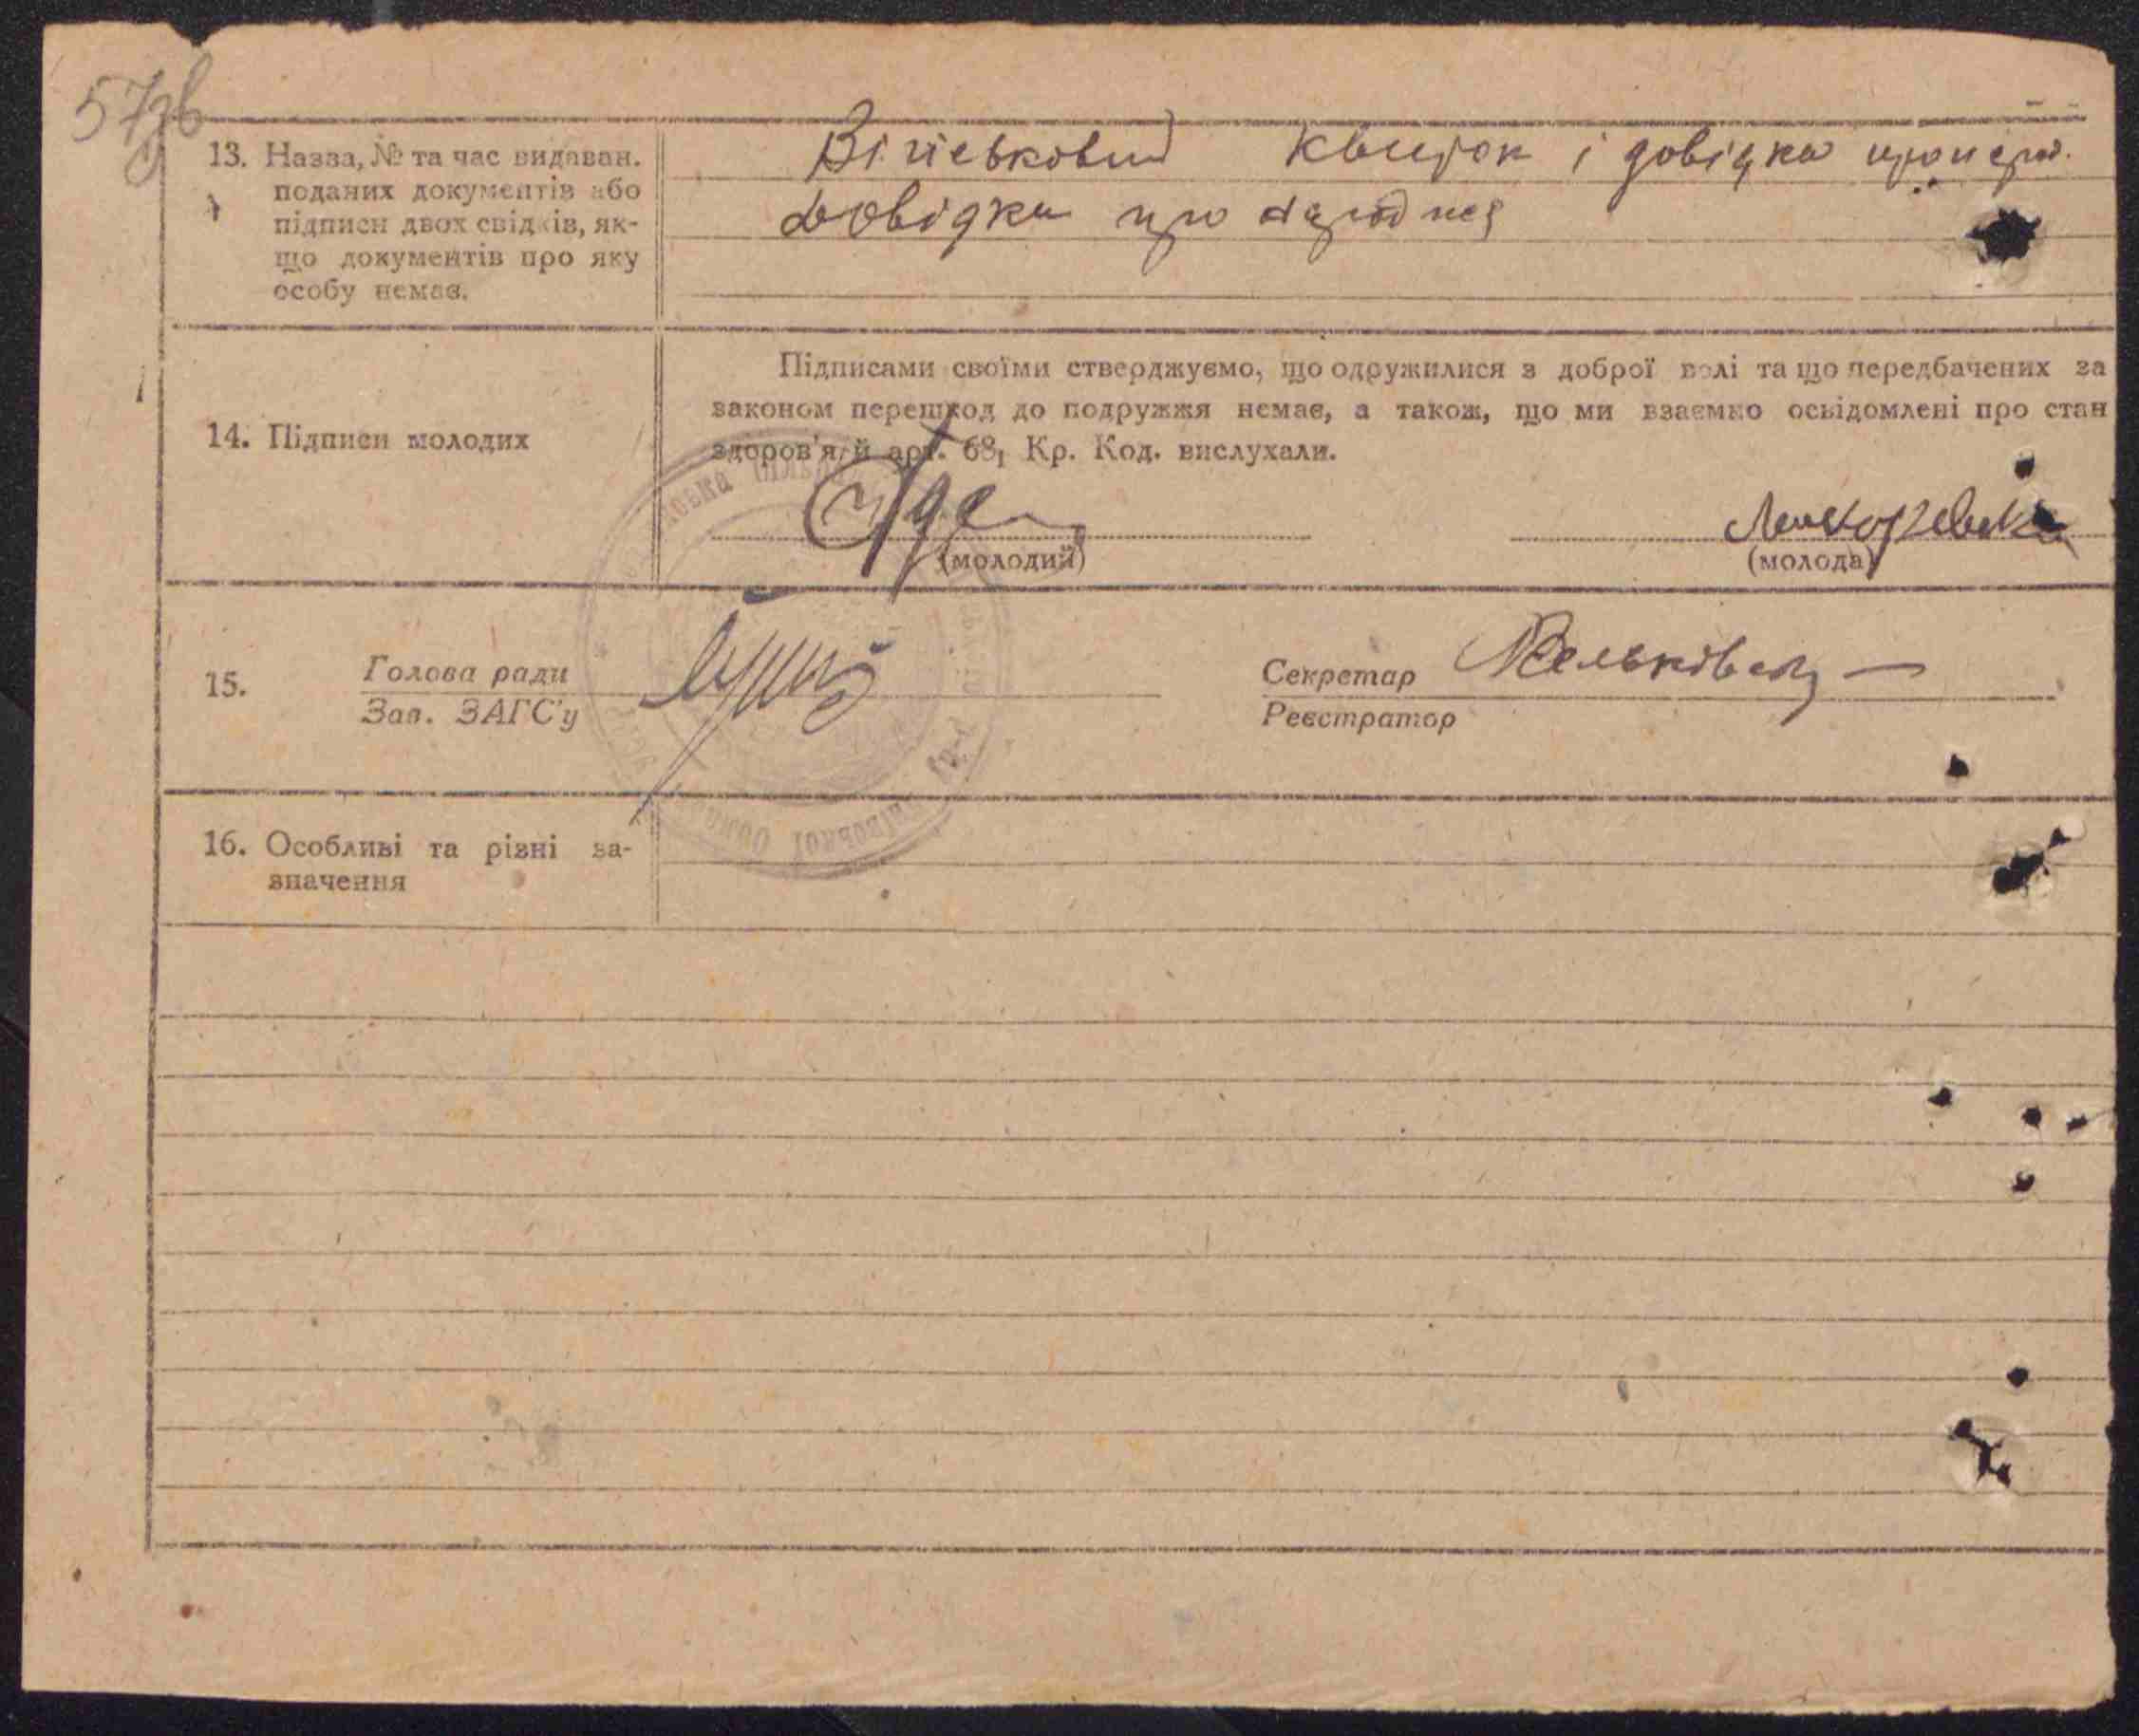 57зв
13. Назва, № та час видаван.
поданих документів або
підписи двох свідків, як-
що документів про яку
особу немає.
Військовий Квиток і довідка
Довідка про
Підписами своїми стверджуємо, що одружилися з доброї волі та що передбачених за
законом перешкод до подружжя немає, а також, що ми взаємно освідомлені про стан
здоров'я й арт. 68, Кр. Код. вислухали.
14. Підписи молодих
(молодий)
(молода)
15.
Голова ради
Зав. ЗАГС'у
Секретар
Реєстратор
16. Особливі та різні за-
значення